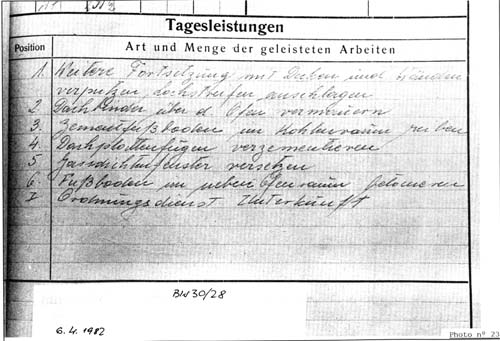 Tagesleistungen
Position
Art und Menge der geleisteten Arbeiten
1. Weitere Fortsetzung mit Decken und Wänden
verputzen anschlagen
2. über d. Ofen vermauern
3. Zementfußboden im reiben
4. Dachplattenfugen verzementieren
5. Gasdichtefenster versetzen
6. Fußboden im neben Ofenraum betonieren
I Ordnungsdienst Unterkunft
BW 30/28
6.4.1982
Photo n° 23